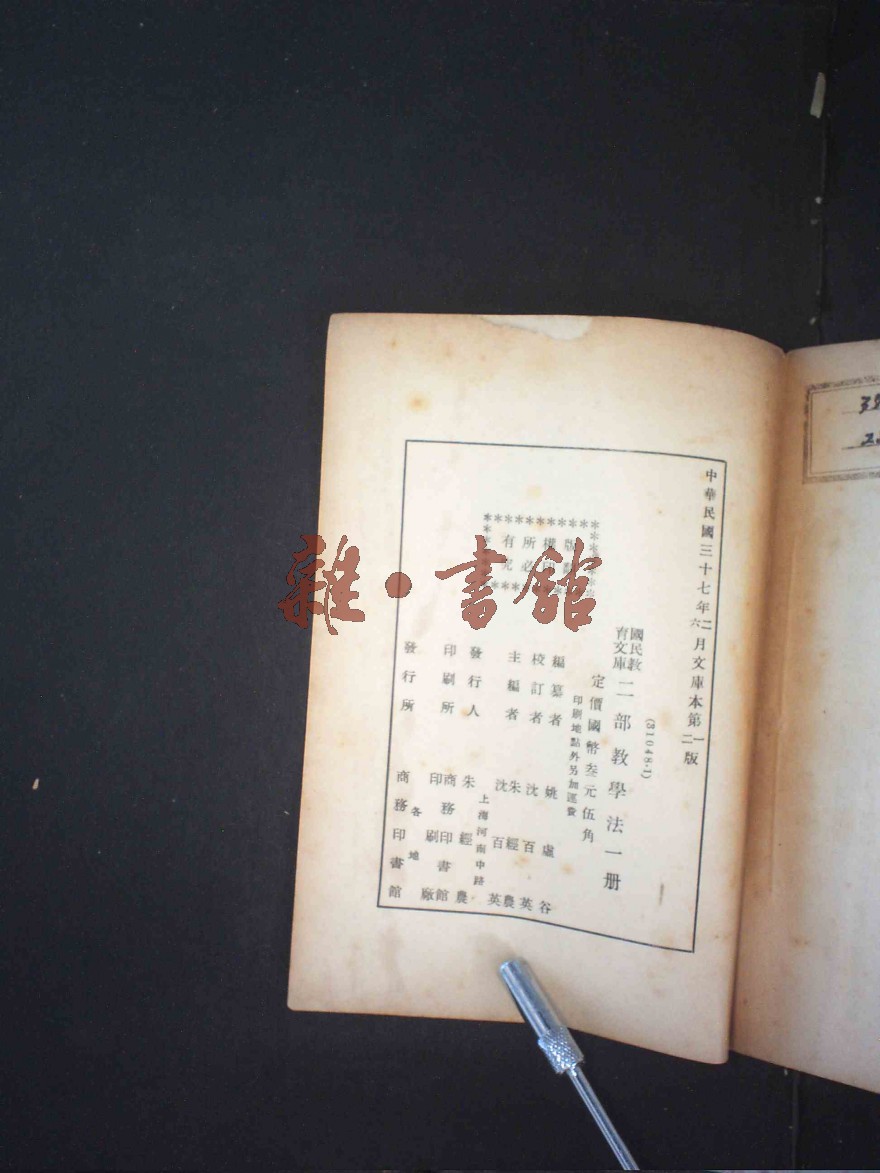 中華民國三十七年二月文庫本第一版
六 二
(81048·1)
國民教育文庫 二部教學法一册
定價國幣叁元伍角
印刷地點外另加運費
版權所有
必究
編纂者 姚虛谷
校訂者 沈百英
主編者 朱經農
沈百英
上海河南中路
發行人 朱經農
印刷所 商務印書館
印刷廠
發行所 各地
商務印書館
雜·書館